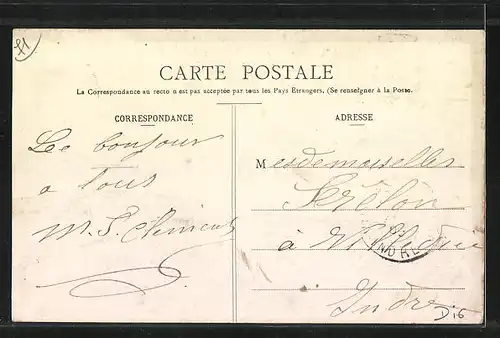 CARTE POSTALE
La Correspondance au recto n'est pas acceptée par tous les Pays Etrangers. (Se renseigner à la Poste.
CORRESPONDANCE
Le bonjour
a tous
M. S. Clément
ADRESSE
Mesdemoiselles
à
Indre
D16